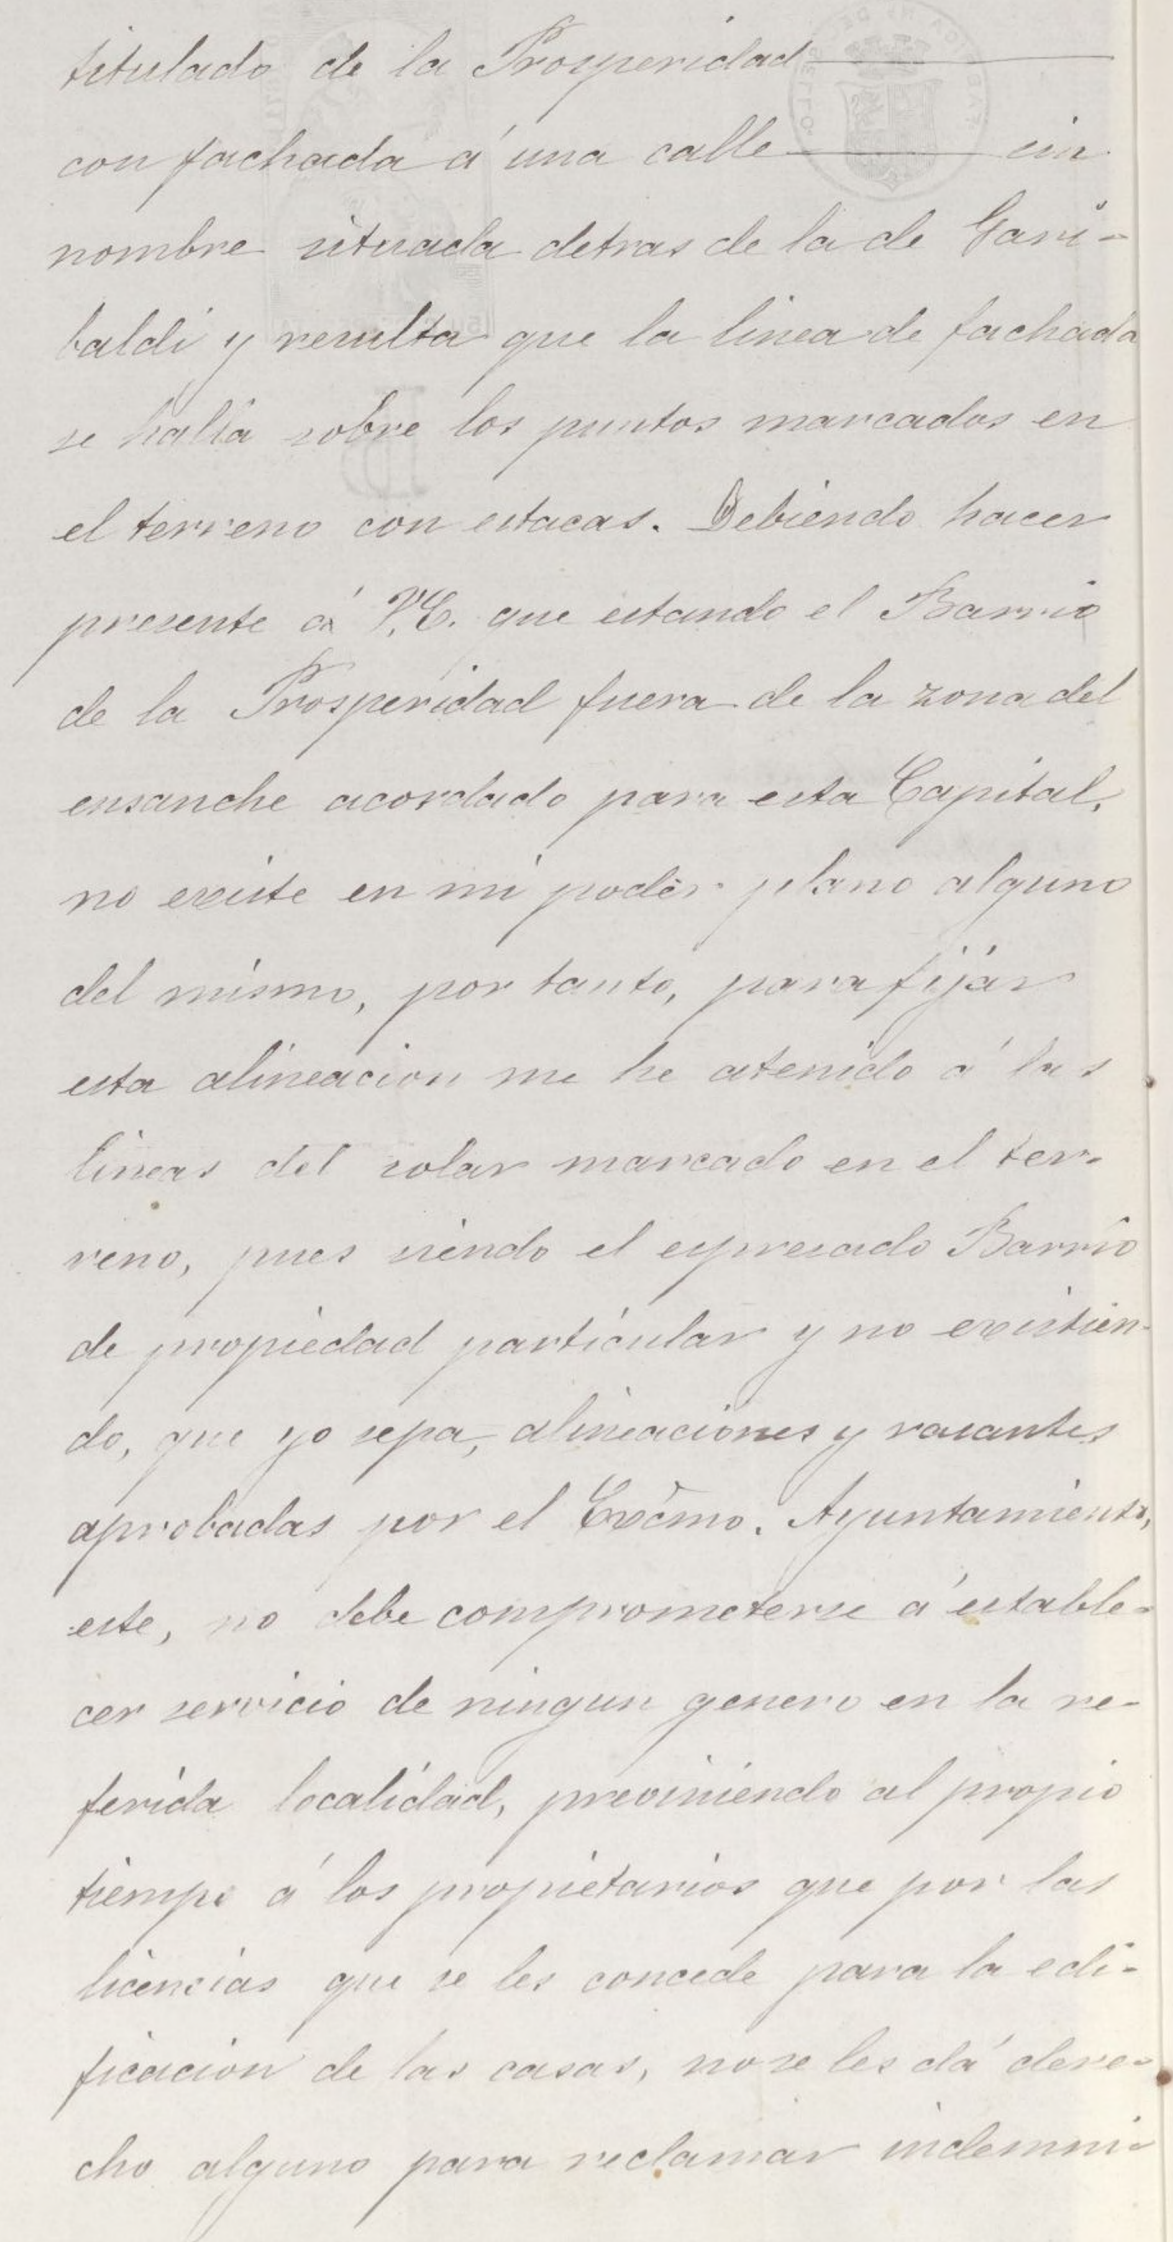 titulado de la Prosperidad
con fachada á una calle sin
nombre situada detras de la de Gari-
baldi y resulta que la linea de fachada
se halla sobre los puntos marcados en
el terreno con estacas. Debiendo hacer
presente á V.E. que estando el Barrio
de la Prosperidad fuera de la zona del
ensanche acordado para esta Capital,
no existe en mi poder plano alguno
del mismo, por tanto, para fijar
esta alineacion me he atenido á las
lineas del solar marcado en el ter-
reno, pues siendo el espresado Barrio
de propiedad particular y no existien-
do, que yo sepa, alineaciones y rasantes
aprobadas por el Excmo. Ayuntamiento,
este, no debe comprometerse á estable-
cer servicio de ningun genero en la re-
ferida localidad, previniendo al propio
tiempo á los propietarios que por las
licencias que se les concede para la edi-
ficacion de las casas, no se les dá dere-
cho alguno para reclamar indemni-